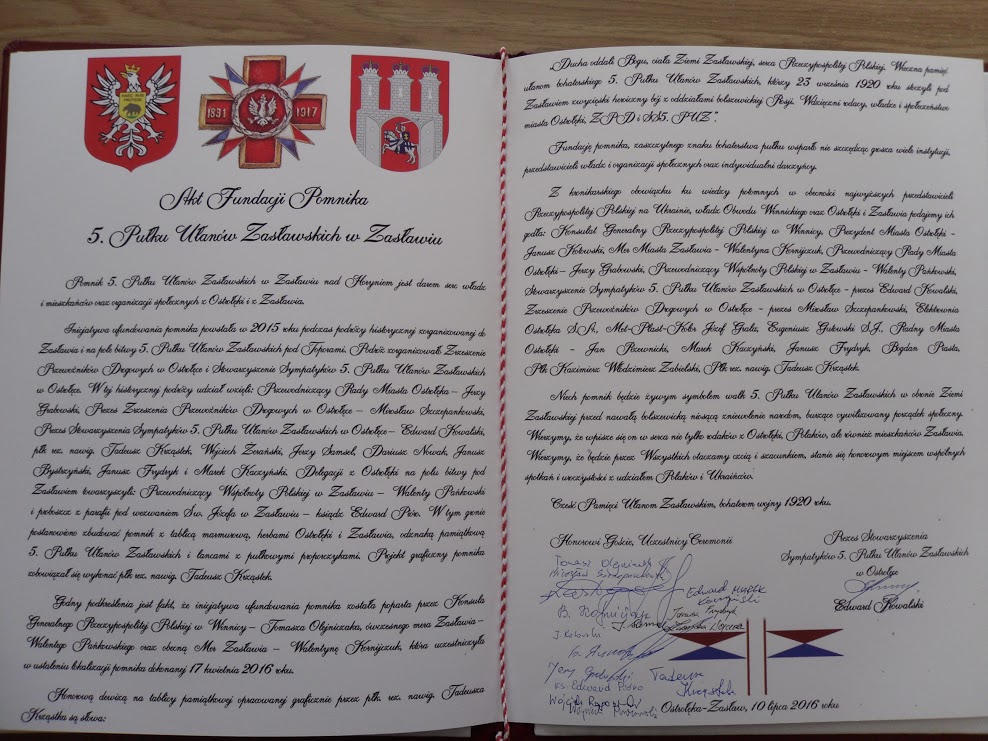 1831 1917
Akt Fundacji Pomnika
5. Pułku Ułanów Zasławskich w Zasławiu
Pomnik 5. Pułku Ułanów Zasławskich w Zasławiu nad Horyniem jest darem serc władz
i mieszkańców oraz organizacji społecznych z Ostrołęki i z Zasławia.
Inicjatywa ufundowania pomnika powstała w 2015 roku podczas podróży historycznej zorganizowanej do
Zasławia i na pole bitwy 5. Pułku Ułanów Zasławskich pod Toporami. Podróż zorganizowało Zrzeszenie
Przewoźników Drogowych w Ostrołęce i Stowarzyszenie Sympatyków 5. Pułku Ułanów Zasławskich
w Ostrołęce. W tej historycznej podróży udział wzięli: Przewodniczący Rady Miasta Ostrołęka – Jerzy
Grabowski, Prezes Zrzeszenia Przewoźników Drogowych w Ostrołęce – Mirosław Szczepankowski,
Prezes Stowarzyszenia Sympatyków 5. Pułku Ułanów Zasławskich w Ostrołęce – Edward Kowalski,
płk rez. nawig. Tadeusz Krząstek, Wojciech Zorański, Jerzy Samsel, Dariusz Nowak, Janusz
Bystrzyński, Janusz Frydryk i Marek Kaczyński. Delegacji z Ostrołęki na polu bitwy pod
Zasławiem towarzyszyli: Przewodniczący Wspólnoty Polskiej w Zasławiu – Walenty Pańkowski
i proboszcz z parafii pod wezwaniem Św. Józefa w Zasławiu – ksiądz Edward Póro. W tym gronie
postanowiono zbudować pomnik z tablicą marmurową, herbami Ostrołęki i Zasławia, odznaką pamiątkową
5. Pułku Ułanów Zasławskich i lancami z pułkowymi proporczykami. Projekt graficzny pomnika
zobowiązał się wykonać płk rez. nawig. Tadeusz Krząstek.
Godny podkreślenia jest fakt, że inicjatywa ufundowania pomnika została poparta przez Konsula
Generalnego Rzeczypospolitej Polskiej w Winnicy – Tomasza Olejniczaka, ówczesnego mera Zasławia –
Walentego Pańkowskiego oraz obecną Mer Zasławia – Walentynę Kornijczuk, która uczestniczyła
w ustaleniu lokalizacji pomnika dokonanej 17 kwietnia 2016 roku.
Honorową dewizą na tablicy pamiątkowej opracowanej graficznie przez płk. rez. nawig. Tadeusza
Krząstka są słowa:
„Ducha oddali Bogu, ciała Ziemi Zasławskiej, serca Rzeczypospolitej Polskiej. Wieczna pamięć
ułanom bohaterskiego 5. Pułku Ułanów Zasławskich, którzy 23 września 1920 roku stoczyli pod
Zasławiem zwycięski heroiczny bój z oddziałami bolszewickiej Rosji. Wdzięczni rodacy, władze i społeczeństwo
miasta Ostrołęki, ZPD i SS5. PUZ”.
Fundację pomnika, zaszczytnego znaku bohaterstwa pułku wsparło nie szczędząc grosza wiele instytucji,
przedstawicieli władz i organizacji społecznych oraz indywidualni darczyńcy.
Z kronikarskiego obowiązku ku wiedzy potomnych w obecności najwyższych przedstawicieli
Rzeczypospolitej Polskiej na Ukrainie, władz Obwodu Winnickiego oraz Ostrołęki i Zasławia podajemy ich
godła: Konsulat Generalny Rzeczypospolitej Polskiej w Winnicy, Prezydent Miasta Ostrołęki –
Janusz Kotowski, Mer Miasta Zasławia – Walentyna Kornijczuk, Przewodniczący Rady Miasta
Ostrołęki – Jerzy Grabowski, Przewodniczący Wspólnoty Polskiej w Zasławiu – Walenty Pańkowski,
Stowarzyszenie Sympatyków 5. Pułku Ułanów Zasławskich w Ostrołęce – prezes Edward Kowalski,
Zrzeszenie Przewoźników Drogowych w Ostrołęce – prezes Mirosław Szczepankowski, Elektrownia
Ostrołęka S.A., Met-Plast-Kolor Józef Grala, Eugeniusz Gutowski S.J., Radny Miasta
Ostrołęki – Jan Rzewnicki, Marek Kaczyński, Janusz Frydryk, Bogdan Piasta,
Płk Kazimierz Włodzimierz Zabielski, Płk rez. nawig. Tadeusz Krząstek.
Niech pomnik będzie żywym symbolem walk 5. Pułku Ułanów Zasławskich w obronie Ziemi
Zasławskiej przed nawałą bolszewicką niosącą zniewolenie narodom, burzącą cywilizowany porządek społeczny.
Wierzymy, że wpisze się on w serca nie tylko rodaków z Ostrołęki, Polaków, ale również mieszkańców Zasławia.
Wierzymy, że będzie przez Wszystkich otaczany czcią i szacunkiem, stanie się honorowym miejscem wspólnych
spotkań i uroczystości z udziałem Polaków i Ukraińców.
Cześć Pamięci Ułanom Zasławskim, bohaterom wojny 1920 roku.
Honorowi Goście, Uczestnicy Ceremonii
Prezes Stowarzyszenia
Sympatyków 5. Pułku Ułanów Zasławskich
w Ostrołęce
Edward Kowalski
Tomasz Olejniczak
Mirosław Szczepankowski
Edward
Janusz Frydryk
J. Kotowski
Jerzy Grabowski
Tadeusz
Krząstek
ks. Edward Póro
Ostrołęka-Zasław, 10 lipca 2016 roku